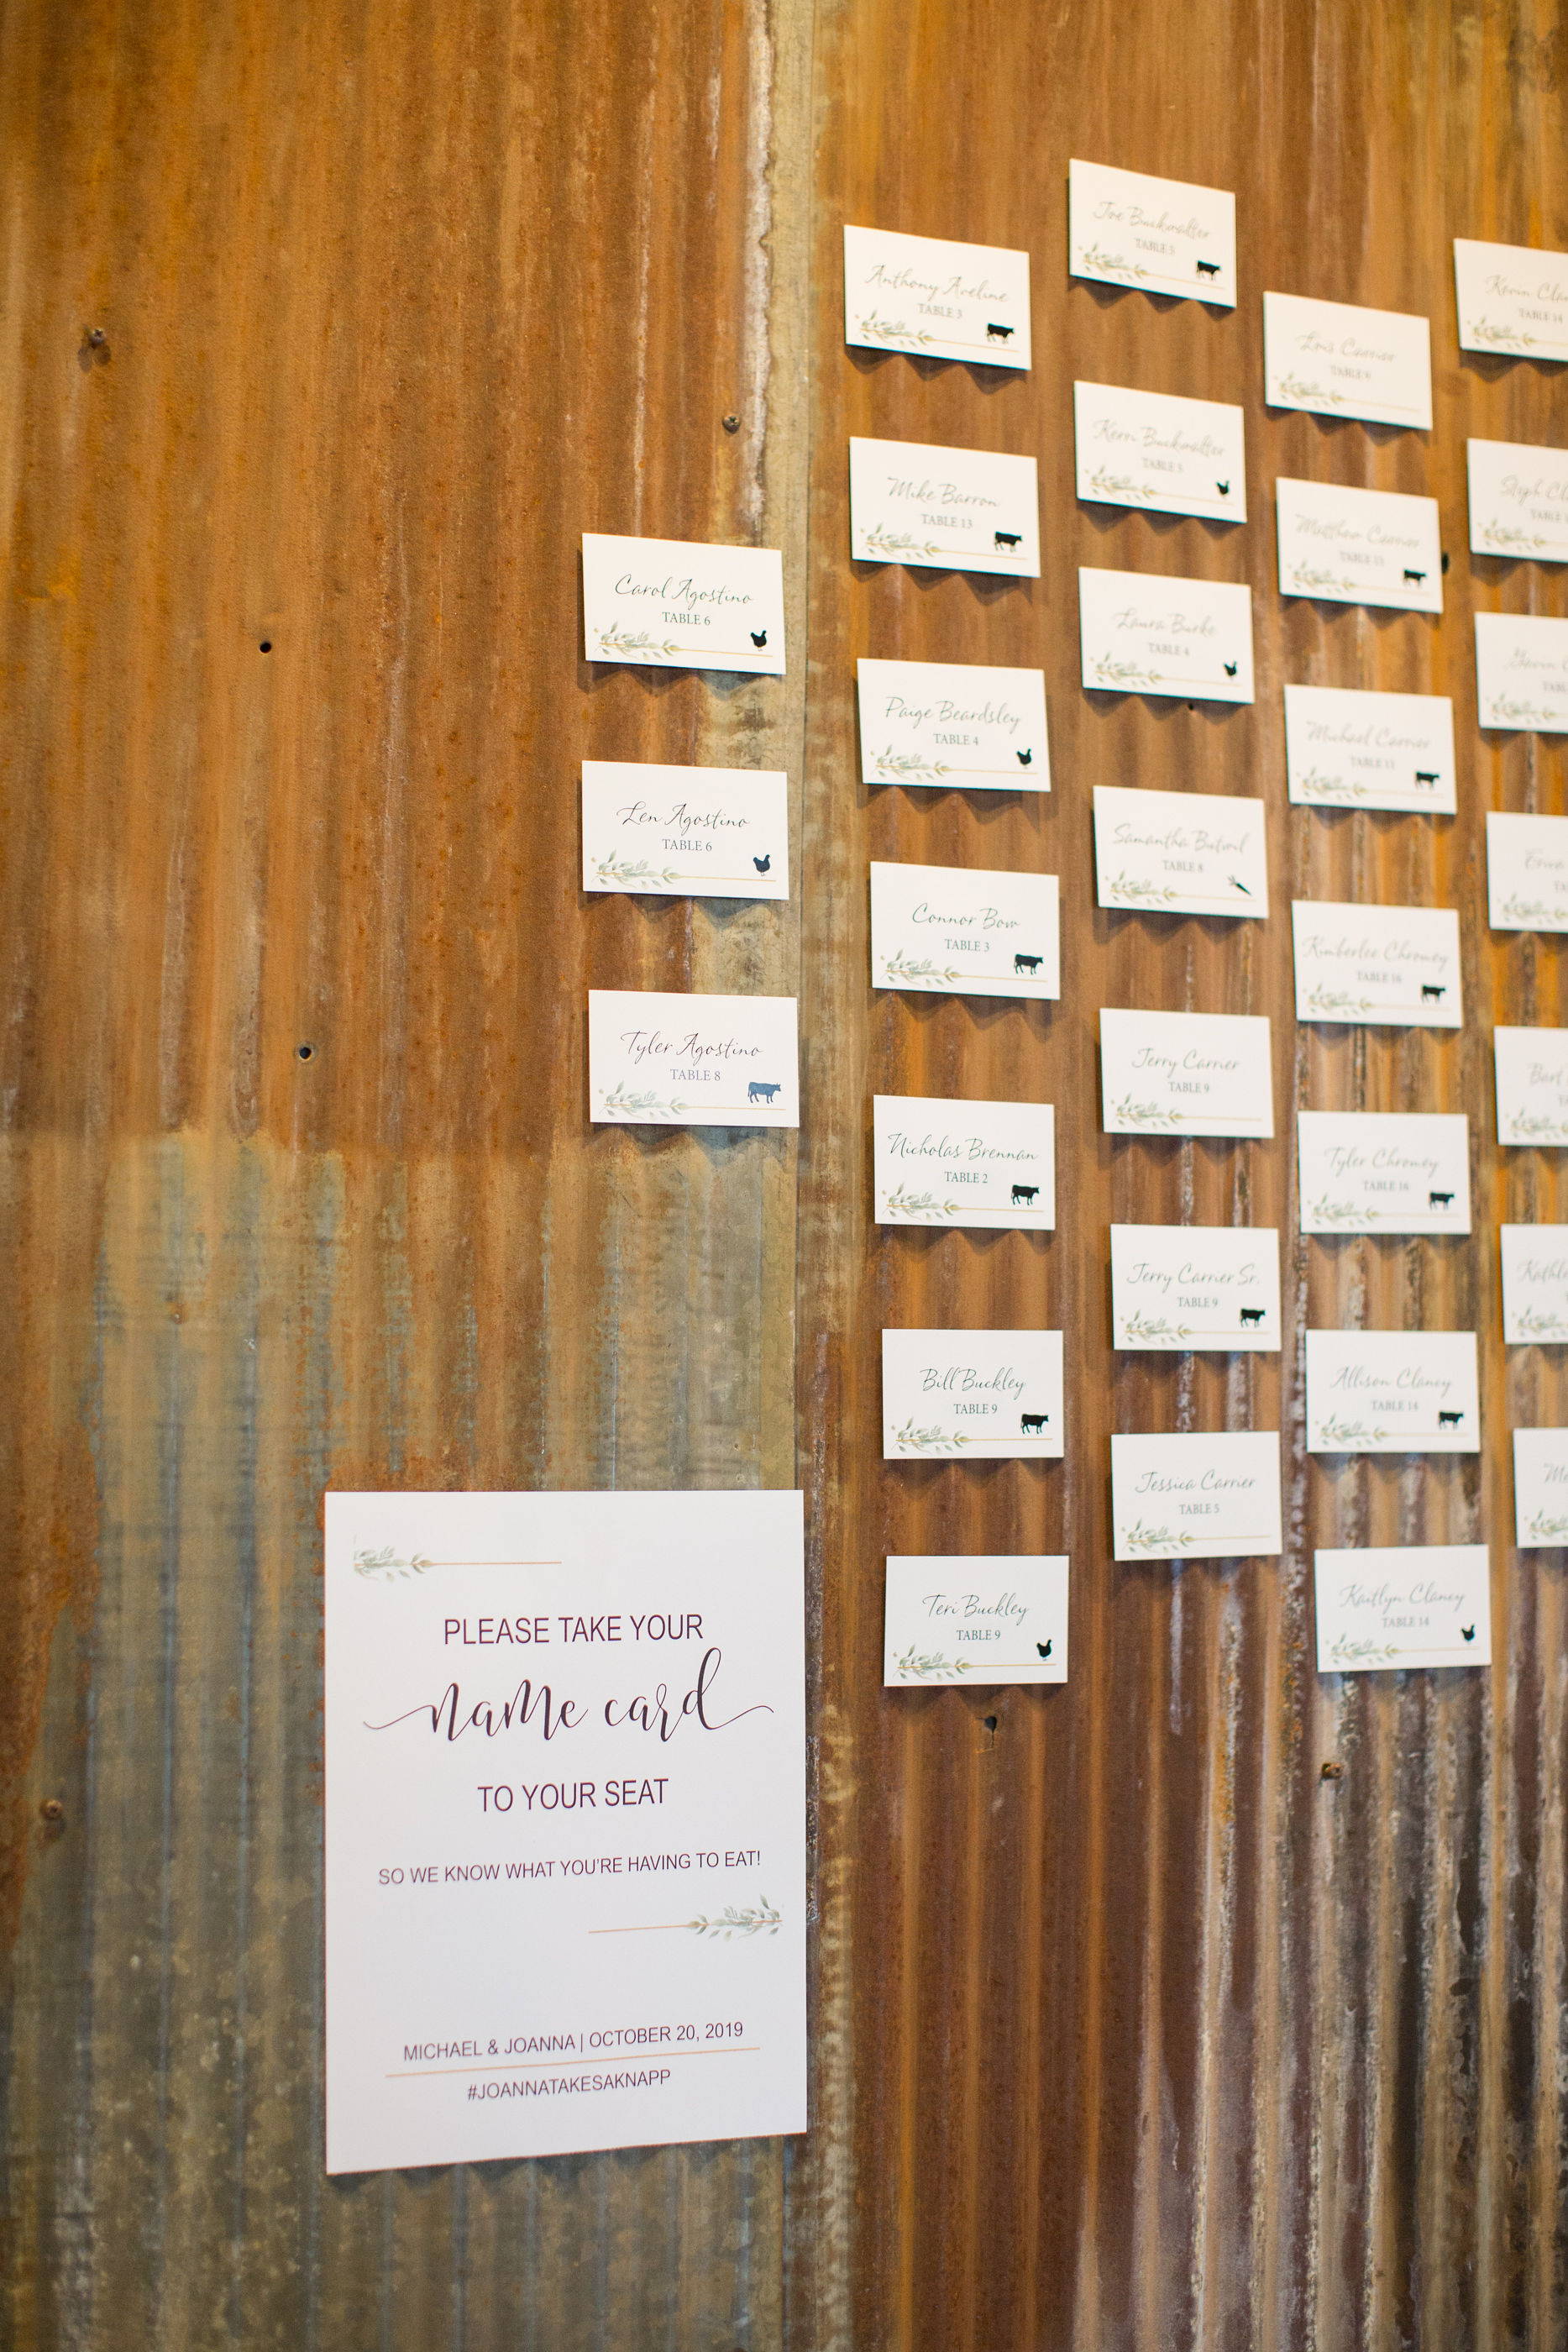 Carol Agostino
TABLE 6
Len Agostino
TABLE 6
Tyler Agostino
TABLE 8
Anthony Aveline
TABLE 3
Mike Barron
TABLE 13
Paige Beardsley
TABLE 4
Connor Bow
TABLE 3
Nicholas Brennan
TABLE 2
Bill Buckley
TABLE 9
Teri Buckley
TABLE 9
Joe Buckwalter
TABLE 5
Kerri Buckwalter
TABLE 5
Laura Burke
TABLE 4
Samantha
TABLE 8
Jerry Carrier
TABLE 9
Jerry Carrier Sr.
TABLE 9
Jessica Carrier
TABLE 5
Carrier
TABLE
Matthew Carrier
TABLE 13
Michael Carrier
TABLE 11
Kimberlee Chromey
TABLE 16
Tyler Chromey
TABLE 16
Allison Clancy
TABLE 14
Kaitlyn Clancy
TABLE 14
Kevin Cla
TABLE 14
Steph Cl
TABLE
Bart
Kathl
PLEASE TAKE YOUR
name card
TO YOUR SEAT
SO WE KNOW WHAT YOU'RE HAVING TO EAT!
MICHAEL & JOANNA | OCTOBER 20, 2019
#JOANNATAKESAKNAPP